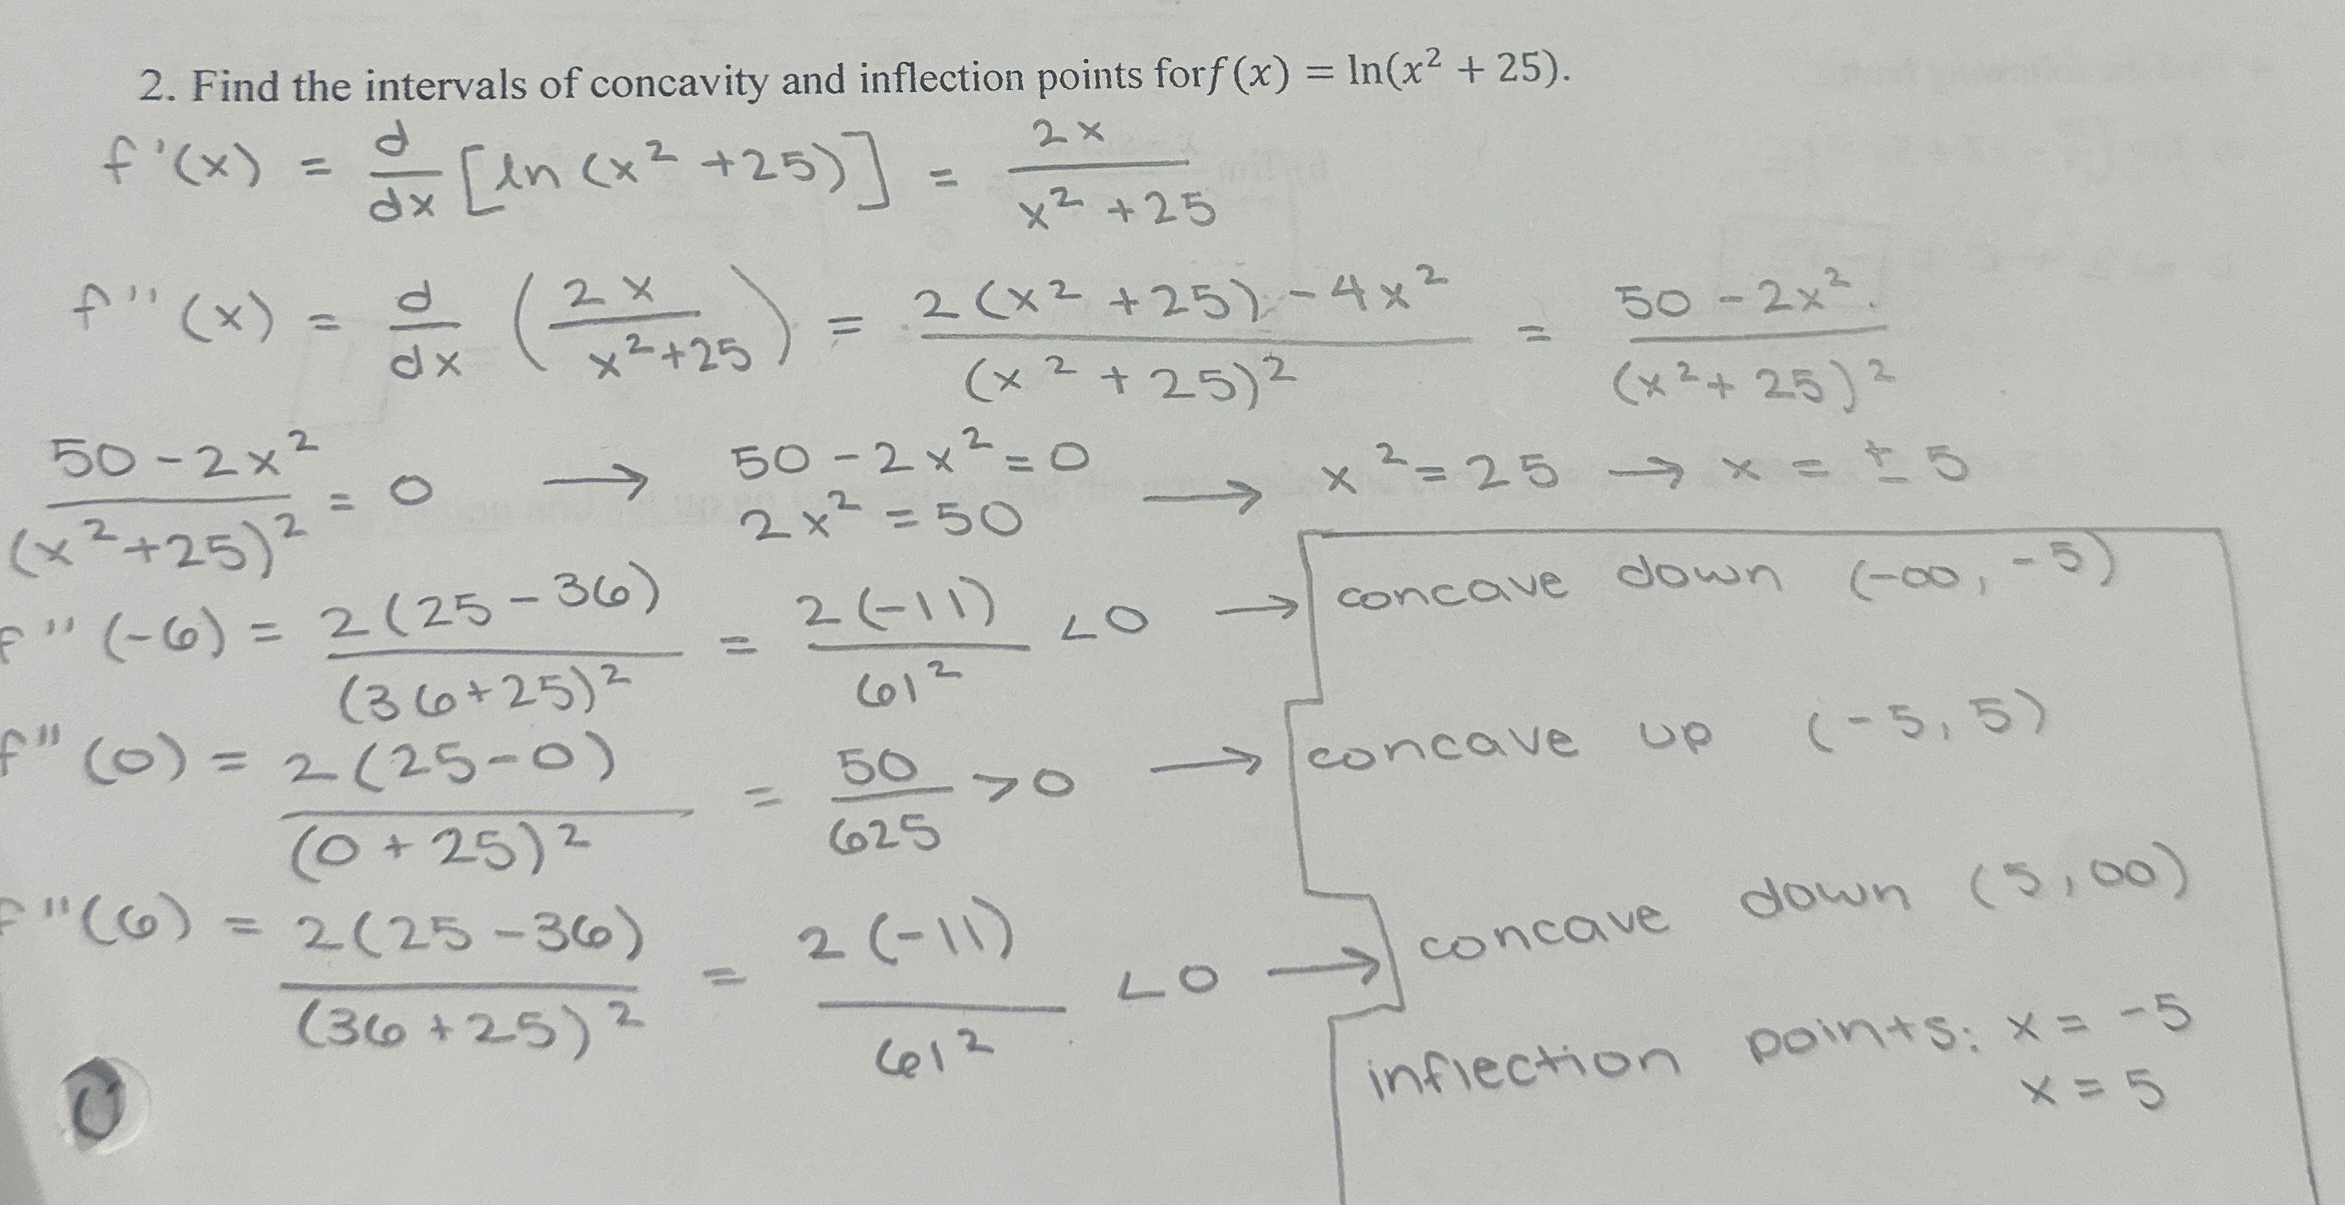 2. Find the intervals of concavity and inflection points forf(x) = ln(x² + 25).
f'(x) = d/dx [ln (x² +25)] = 2x/(x² +25)
f''(x) = d/dx (2x/(x²+25)) = (2(x² +25) - 4x²)/(x² + 25)² = (50 - 2x²)/(x² + 25)²
(50 - 2x²)/(x²+25)² = 0 → 50 - 2x² = 0 → x² = 25 → x = ± 5
2x² = 50
f''(-6) = 2(25 - 36)/(36+25)² = 2(-11)/61² <0 → concave down (-∞, -5)
f''(0) = 2(25-0)/(0 + 25)² = 50/625 >0 → concave up (-5, 5)
f''(6) = 2(25 - 36)/(36 + 25)² = 2(-11)/61² <0 → concave down (5, ∞)
inflection points: x = -5
x = 5